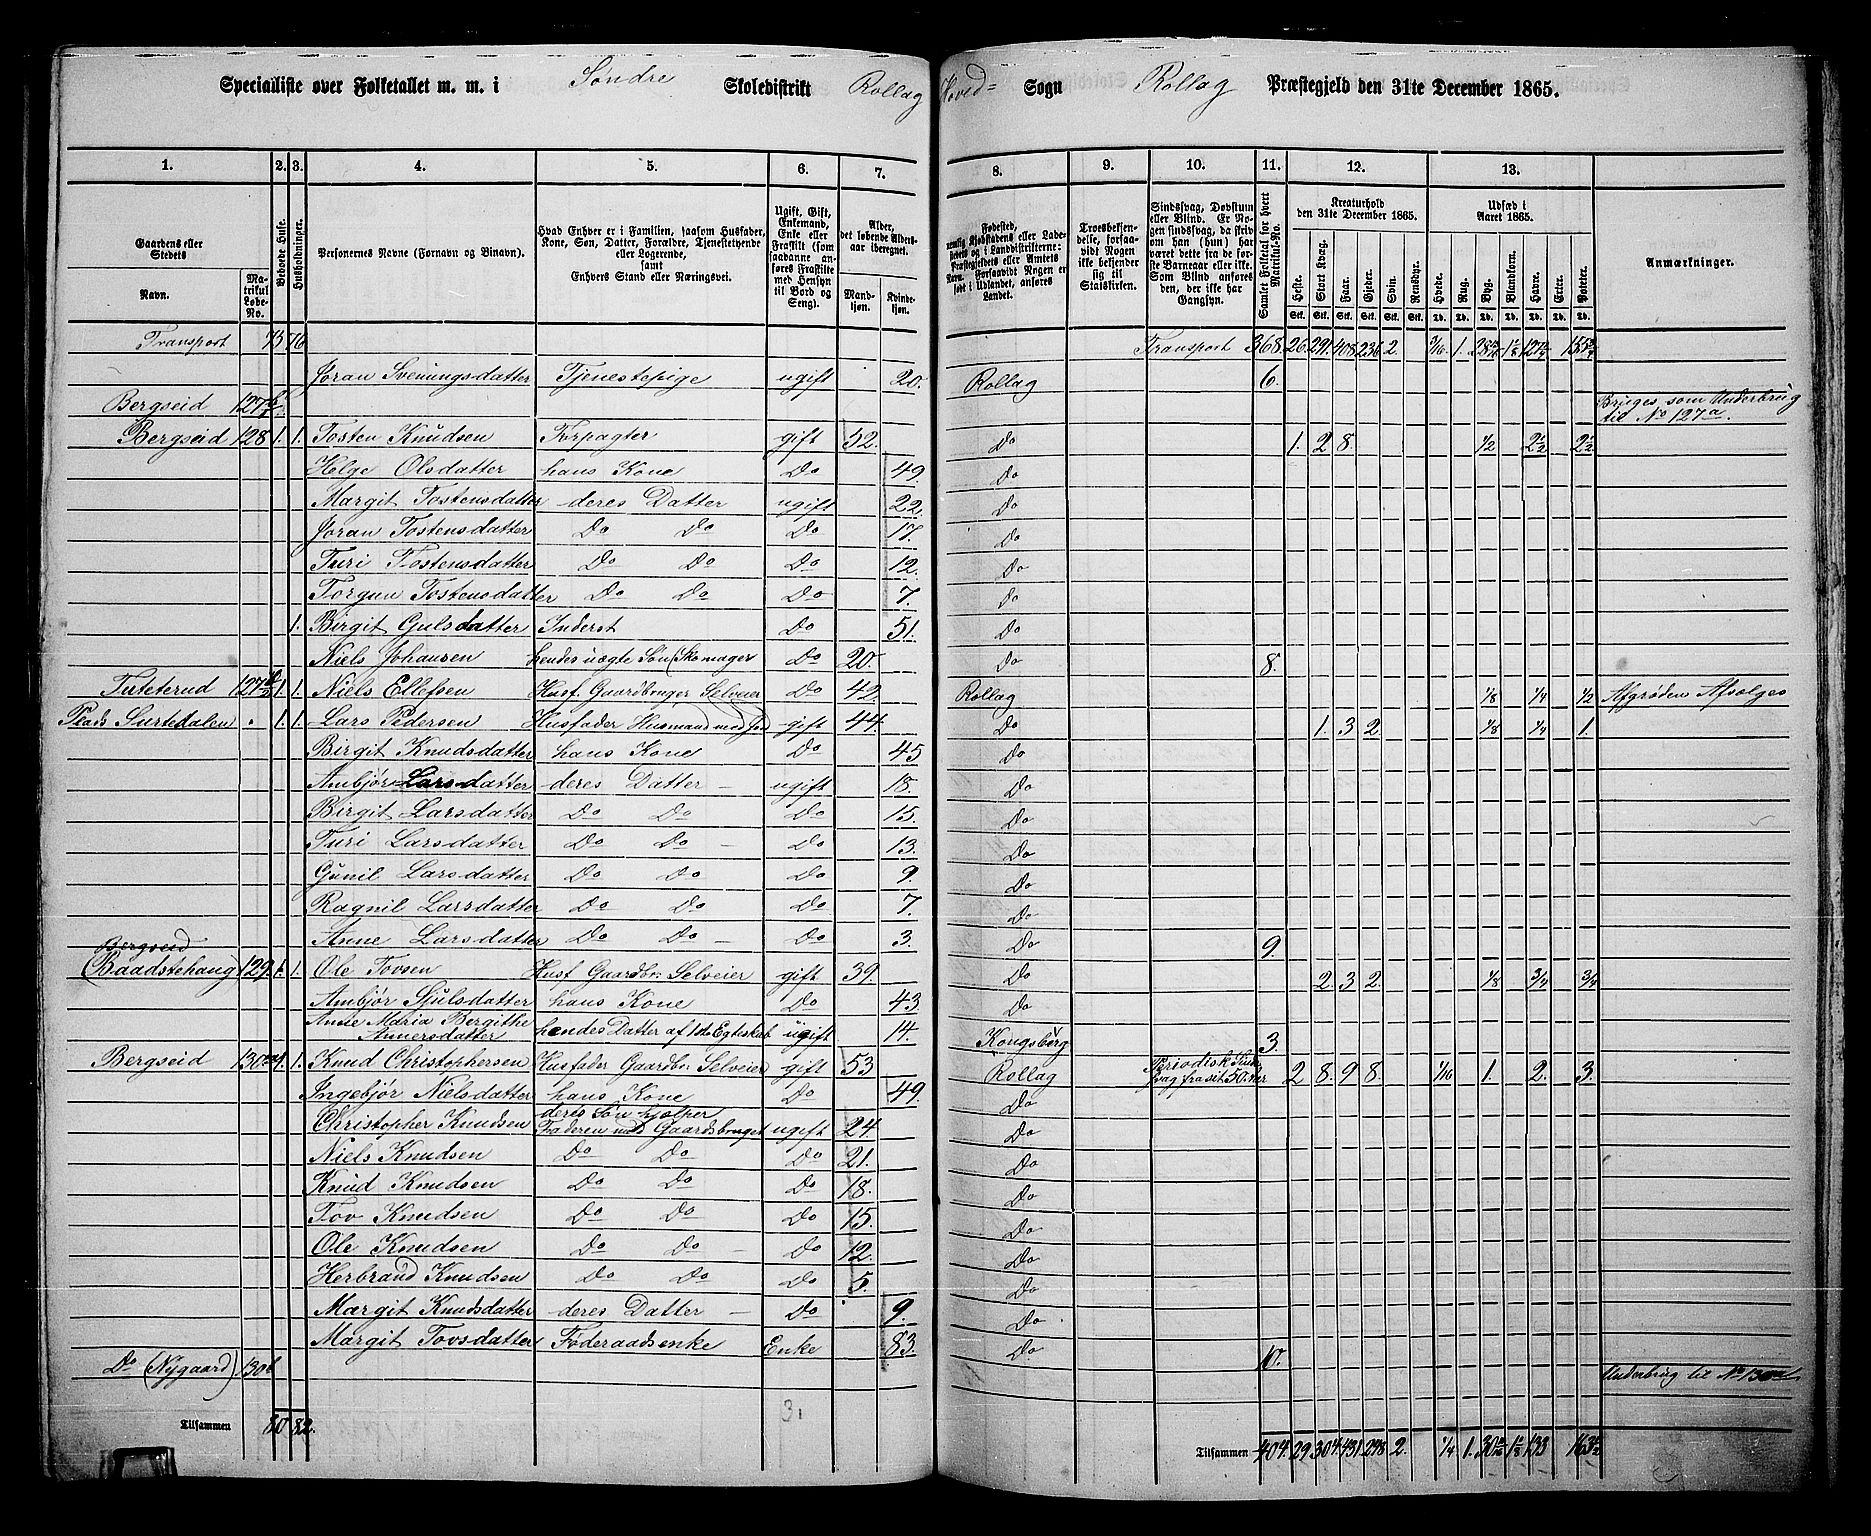 Specialliste over Folketallet m. m. i Søndre Skoledistrikt Rollag Hoved= Sogn Rollag Præstegjeld den 31te December 1865.
1. 2. 3. 4. 5. 6. 7. 8. 9. 10. 11. 12. 13.
Gaardens eller Stedets
Navn.
Matrikul Løbe-No.
Beboede Huse.
Husholdninger.
Personernes Navne (Fornavn og Binavn).
Hvad Enhver er i Familien, saasom Husfader, Kone, Søn, Datter, Forældre, Tjenestetyende eller Logerende, samt Enhvers Stand eller Næringsvei.
Ugift, Gift, Enkemand, Enke eller Fraskilt (som saadanne anføres Fraskilte med Hensyn til Bord og Seng).
Alder, det løbende Aldersaar iberegnet.
Mandkjøn. Kvindekjøn.
Troesbekjendelse, forsaavidt Nogen ikke bekjender sig til Statskirken.
Sindssvag, Døvstum eller Blind. Er Nogen sindssvag, da skriv om han (hun) har været dette fra de første Barneaar eller ikke. Som Blind anføres den, der ikke har Gangsyn.
Samlet Folketal for hvert Matrikul-No.
Kreaturhold den 31te December 1865.
Heste. Stort Kvæg. Faar. Gjeder. Svin. Rensdyr.
Udsæd i Aaret 1865.
Hvede. Rug. Byg. Blandkorn. Havre. Erter. Poteter.
Anmærkninger.
Transport 75 76 Transport 368. 26. 291. 408. 236 2. 3/16 1.
Joran Sveningsdatter Tjenestepige ugift 20. Rollag 6.
Bergseid 127b Bruges som Underbrug til No 127a.
Bergseid 128 1. 1. Tosten Knudsen Forpagter gift 52. Do 1. 2 8. 1/2 2 1/2 2 1/2
Helge Olsdatter hans Kone Do 49 Do
Margit Tostensdatter deres Datter ugift 22. Do
Joran Tostensdatter Do Do Do 17. Do
Turi Tostensdatter Do Do Do 12. Do
Torgun Tostensdatter Do Do Do 7. Do
1. Birgit Gulsdatter Inderst Do 51. Do
Niels Johansen hendes uægte Søn (Skomager Do 20. Do 8.
Tuleterud 1. 1. Niels Ellefsen Husf. Gaardbruger Selveier Do 42. Rollag 1/8 1/4 1/2 Afgrøden Afsolges
Plads Surtedalen 1. 1. Lars Pedersen Husfader Husmand med Jord gift 44. Do 1. 3 2. 1/8 1/4 1.
Birgit Knudsdatter hans Kone Do 45 Do
Ambjør Larsdatter deres Datter ugift 18. Do
Birgit Larsdatter Do Do Do 15. Do
Turi Larsdatter Do Do Do 13. Do
Gunil Larsdatter Do Do Do 9. Do
Ragnil Larsdatter Do Do Do 7. Do
Anne Larsdatter Do Do Do 3. Do 9.
Bergseid
(Baadstehaug) 129. 1. 1. Ole Tovsen Husf Gaardbr: Selveier gift 39. Do 2. 3 2. 1/8 3/4 3/4
Ambjør Sjulsdatter hans Kone Do 43 Do
Anne Maria Bergithe Annersdatter hendes Datter af 1ste Egteskab ugift 14. Kongsberg 3.
Bergseid 130a 1. 1. Knud Christophersen Husfader Gaardbr: Selveier gift 53 Rollag 2 8. 9 8. 1/16 1. 2. 3.
Ingebjør Nielsdatter hans Kone Do 49. Do
Christopher Knudsen deres Søn hjelper Faderen med Gaardsbruget ugift 24. Do
Niels Knudsen Do Do Do 21. Do
Knud Knudsen Do Do Do 18. Do
Tov Knudsen Do Do Do 15. Do
Ole Knudsen Do Do Do 12. Do
Herbrand Knudsen Do Do Do 5. Do
Margit Knudsdatter deres Datter Do 9. Do
Margit Tovsdatter Føderaadsenke Enke 83. Do 10.
Do (Nygaard) 130b Underbrug til No 130a
Tilsammen 80 82. Tilsammen 404. 29. 304. 431. 248 2. 1/4 1. 133